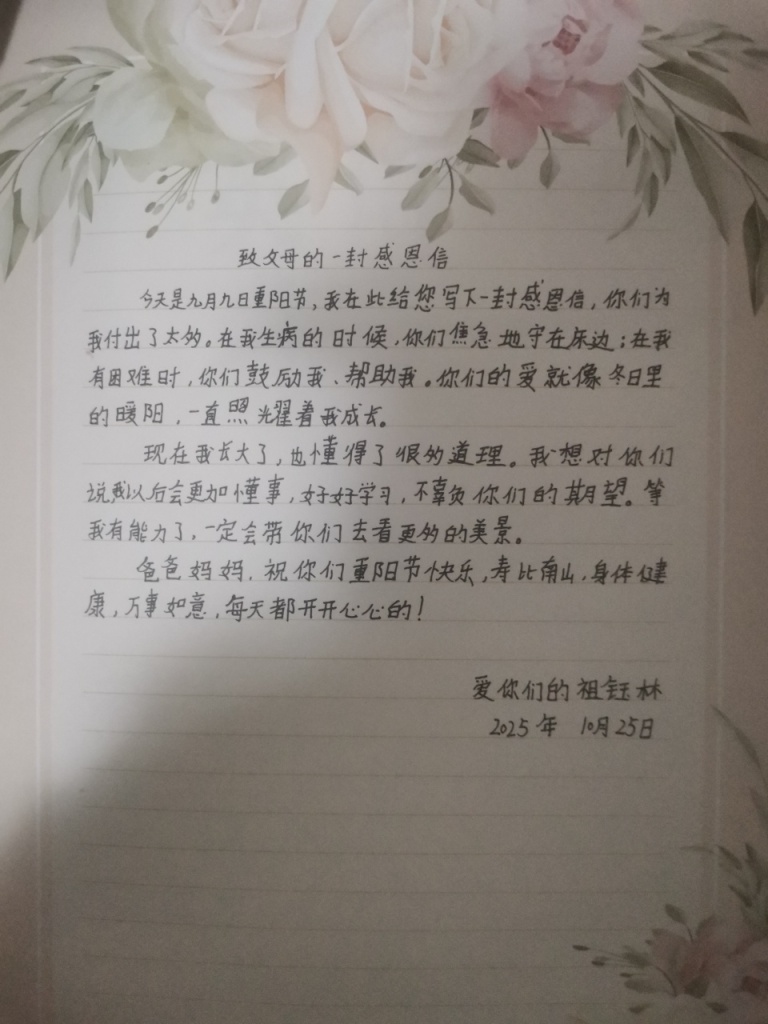 致父母的一封感恩信
今天是九月九日重阳节，我在此给您写下一封感恩信，你们为
我付出了太多。在我生病的时候，你们焦急地守在床边；在我
有困难时，你们鼓励我、帮助我。你们的爱就像冬日里
的暖阳，一直照耀着我成长。
现在我长大了，也懂得了很多道理。我想对你们
说我以后会更加懂事，好好学习，不辜负你们的期望。等
我有能力了，一定会带你们去看更多的美景。
爸爸妈妈，祝你们重阳节快乐，寿比南山，身体健
康，万事如意，每天都开开心心的！
爱你们的祖钰林
2025年 10月25日